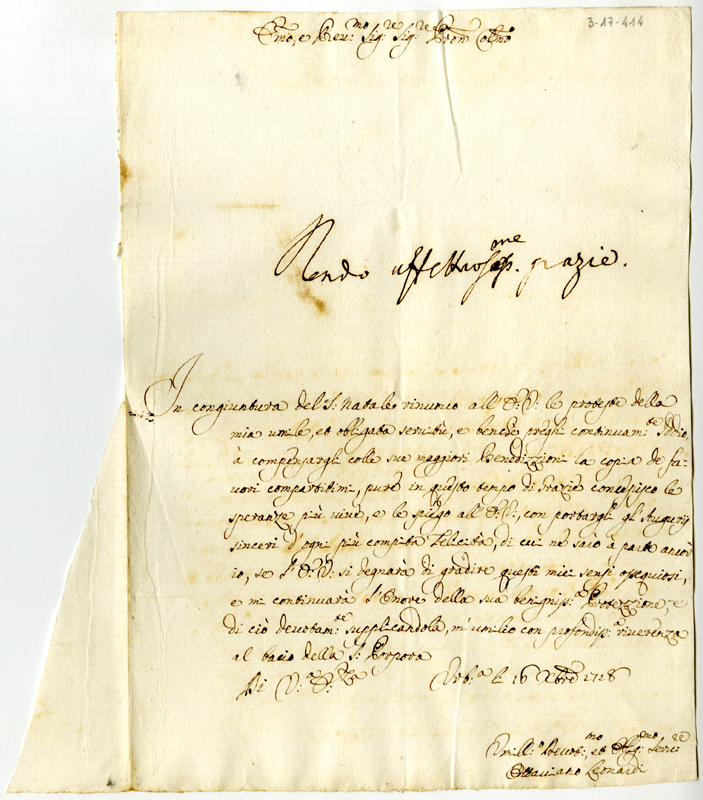 3-17-414
Emo, e Rev:mo Sig:re Sig:re Pron Colmo
Rendo affettuosissme. grazie.
In congiuntura del S: Natale rinuovo all' E: V: le proteste della
mia umile, et obligata servitù, e benchè preghi continuam:te Iddio,
à compensargli colle sue maggiori Benedizzioni la copia de fa-
vori compartitimi, pure in questo tempo di Grazie concepisco le
speranze più vive, e le spiego all' E: V:, con portargli gl' Augurij
sinceri d' ogni più compita Felicità, di cui ne sarò à parte ancor
io, se l' E: V: si degnarà di gradire questi miei sensi ossequiosi,
e mi continuarà l' Onore della sua benigniss:a Protezzione; e
di ciò devotam:te supplicandola, m' umilio con profondiss:a riverenza
al bacio della S: Porpora
Di V:a E:za Urb:o li 16 Xbre 1728
Umill:o Devot:mo, et Oblig:mo Serv:re
Ottaviano Leonardi